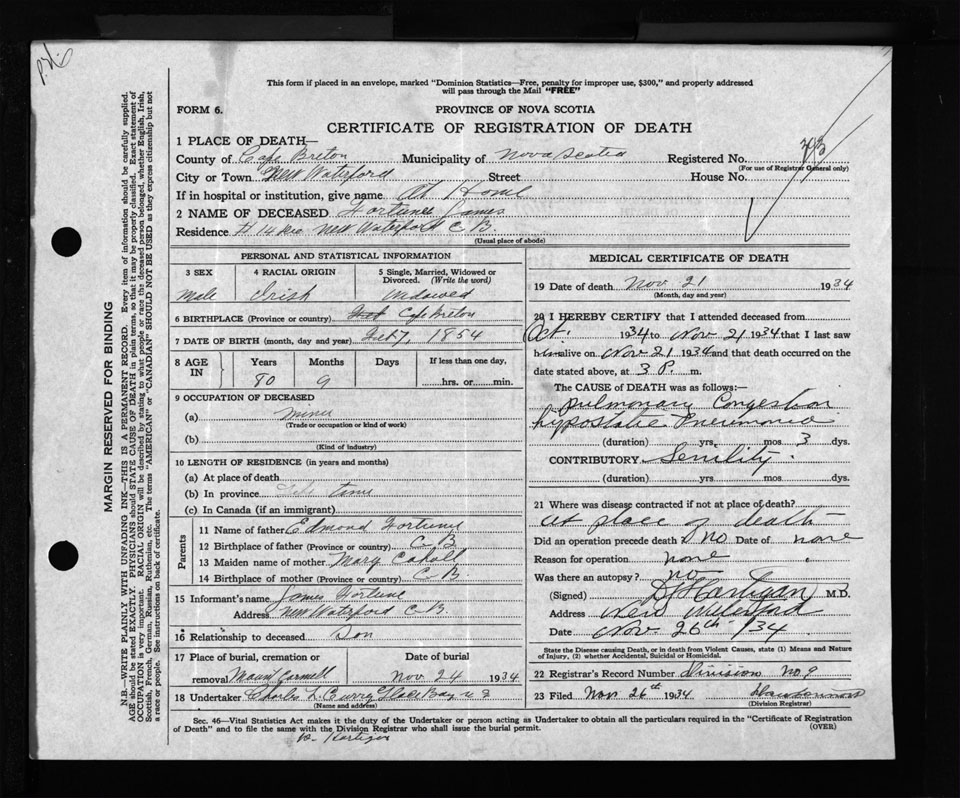 This form if placed in an envelope, marked "Dominion Statistics—Free, penalty for improper use, $300," and properly addressed
will pass through the Mail "FREE"
FORM 6.
PROVINCE OF NOVA SCOTIA
CERTIFICATE OF REGISTRATION OF DEATH
1 PLACE OF DEATH—
County of Cape Breton Municipality of Nova Scotia Registered No.
(For use of Registrar General only)
City or Town New Waterford Street House No.
If in hospital or institution, give name At Home
2 NAME OF DECEASED Fortune James
Residence New Waterford C B.
(Usual place of abode)
PERSONAL AND STATISTICAL INFORMATION
3 SEX
4 RACIAL ORIGIN
5 Single, Married, Widowed or Divorced. (Write the word)
Male Irish Widowed
6 BIRTHPLACE (Province or country) Cape Breton
7 DATE OF BIRTH (month, day and year) Feb 7, 1854
8 AGE IN
Years Months Days If less than one day,
80 9 hrs. or min.
9 OCCUPATION OF DECEASED
(a) miner
(Trade or occupation or kind of work)
(b)
(Kind of industry)
10 LENGTH OF RESIDENCE (in years and months)
(a) At place of death
(b) In province life time
(c) In Canada (if an immigrant)
Parents
11 Name of father Edmond Fortune
12 Birthplace of father (Province or country) C B
13 Maiden name of mother Mary Cahill
14 Birthplace of mother (Province or country) C B.
15 Informant's name James Fortune
Address New Waterford C B.
16 Relationship to deceased Son
17 Place of burial, cremation or Date of burial
removal Mount Carmell Nov 24 1934
18 Undertaker Charles L. Curry Glace Bay N S
(Name and address)
MEDICAL CERTIFICATE OF DEATH
19 Date of death Nov 21 1934
(Month, day and year)
20 I HEREBY CERTIFY that I attended deceased from
Oct. 1934 to Nov 21 1934 that I last saw
him alive on Nov 21 1934 and that death occurred on the
date stated above, at 3 P. m.
The CAUSE of DEATH was as follows:—
Pulmonary Congestion
hypostatic Pneumonia
(duration) yrs. mos. 3 dys.
CONTRIBUTORY Senility.
(duration) yrs. mos. dys.
21 Where was disease contracted if not at place of death?
at place of death
Did an operation precede death? no Date of none
Reason for operation none
Was there an autopsy? no
(Signed) Hartigan M.D.
Address New Waterford
Date Nov. 26th 1934
State the Disease causing Death, or in death from Violent Causes, state (1) Means and Nature
of Injury, (2) whether Accidental, Suicidal or Homicidal.
22 Registrar's Record Number Division No. 9
23 Filed Nov 26th 1934
(Division Registrar)
Sec. 46—Vital Statistics Act makes it the duty of the Undertaker or person acting as Undertaker to obtain all the particulars required in the "Certificate of Registration
of Death" and to file the same with the Division Registrar who shall issue the burial permit. (OVER)
Hartigan
MARGIN RESERVED FOR BINDING
N.B.—WRITE PLAINLY WITH UNFADING INK—THIS IS A PERMANENT RECORD. Every item of information should be carefully supplied.
AGE should be stated EXACTLY. PHYSICIANS should STATE CAUSE OF DEATH in plain terms, so that it may be properly classified. Exact statement of
OCCUPATION is very important. RACIAL ORIGIN will be described by stating to what people or race the deceased person belonged, whether English, Irish,
Scottish, French, German, Russian, Ruthenian, etc. The terms "AMERICAN" or "CANADIAN" SHOULD NOT BE USED as they express citizenship but not
a race or people. See instructions on back of certificate.